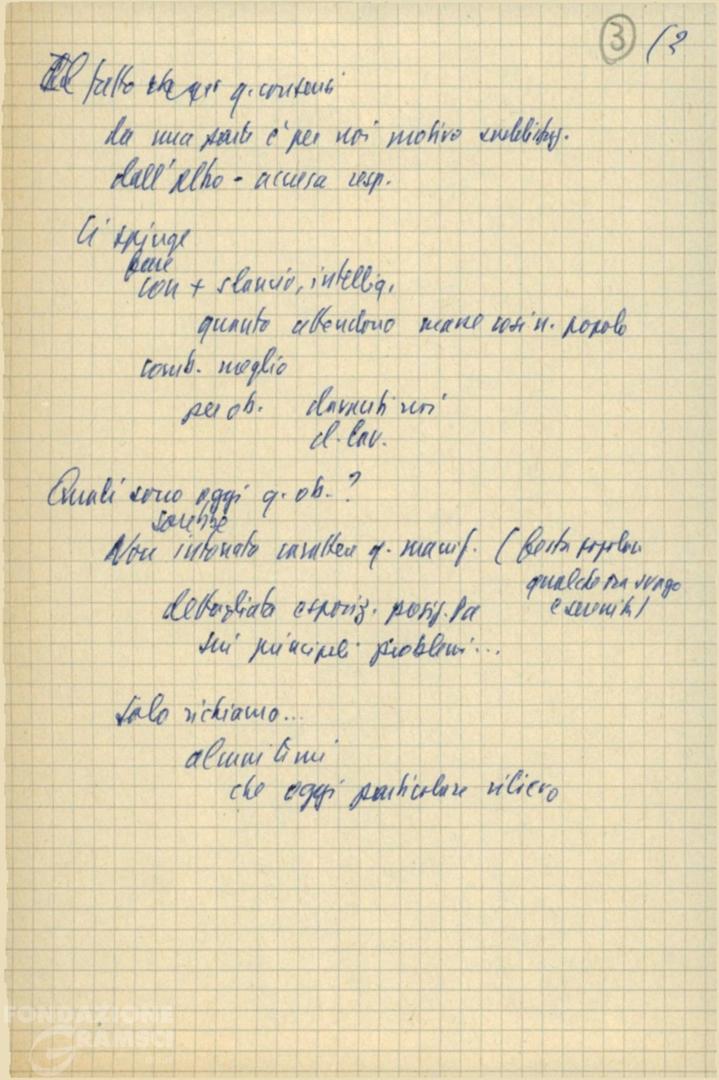 3 (2
fatto che per q. consensi
da una parte è per noi motivo soddisfaz.
dall'altro - accresc. resp.
Ci spinge
fare
con + slancio, intellig.
quanto attendono masse così n. popolo
comb. meglio
per ob. davanti noi
d. lav.
Quali sono oggi q. ob.?
sarebbe
Non intonato carattere q. manif. (festa popolare
qualche ora svago
e serenità)
dettagliata esposiz. posiz. Pa
sui principali problemi...
Solo richiamo...
alcuni temi
che oggi particolare rilievo
FONDAZIONE
GRAMSCI